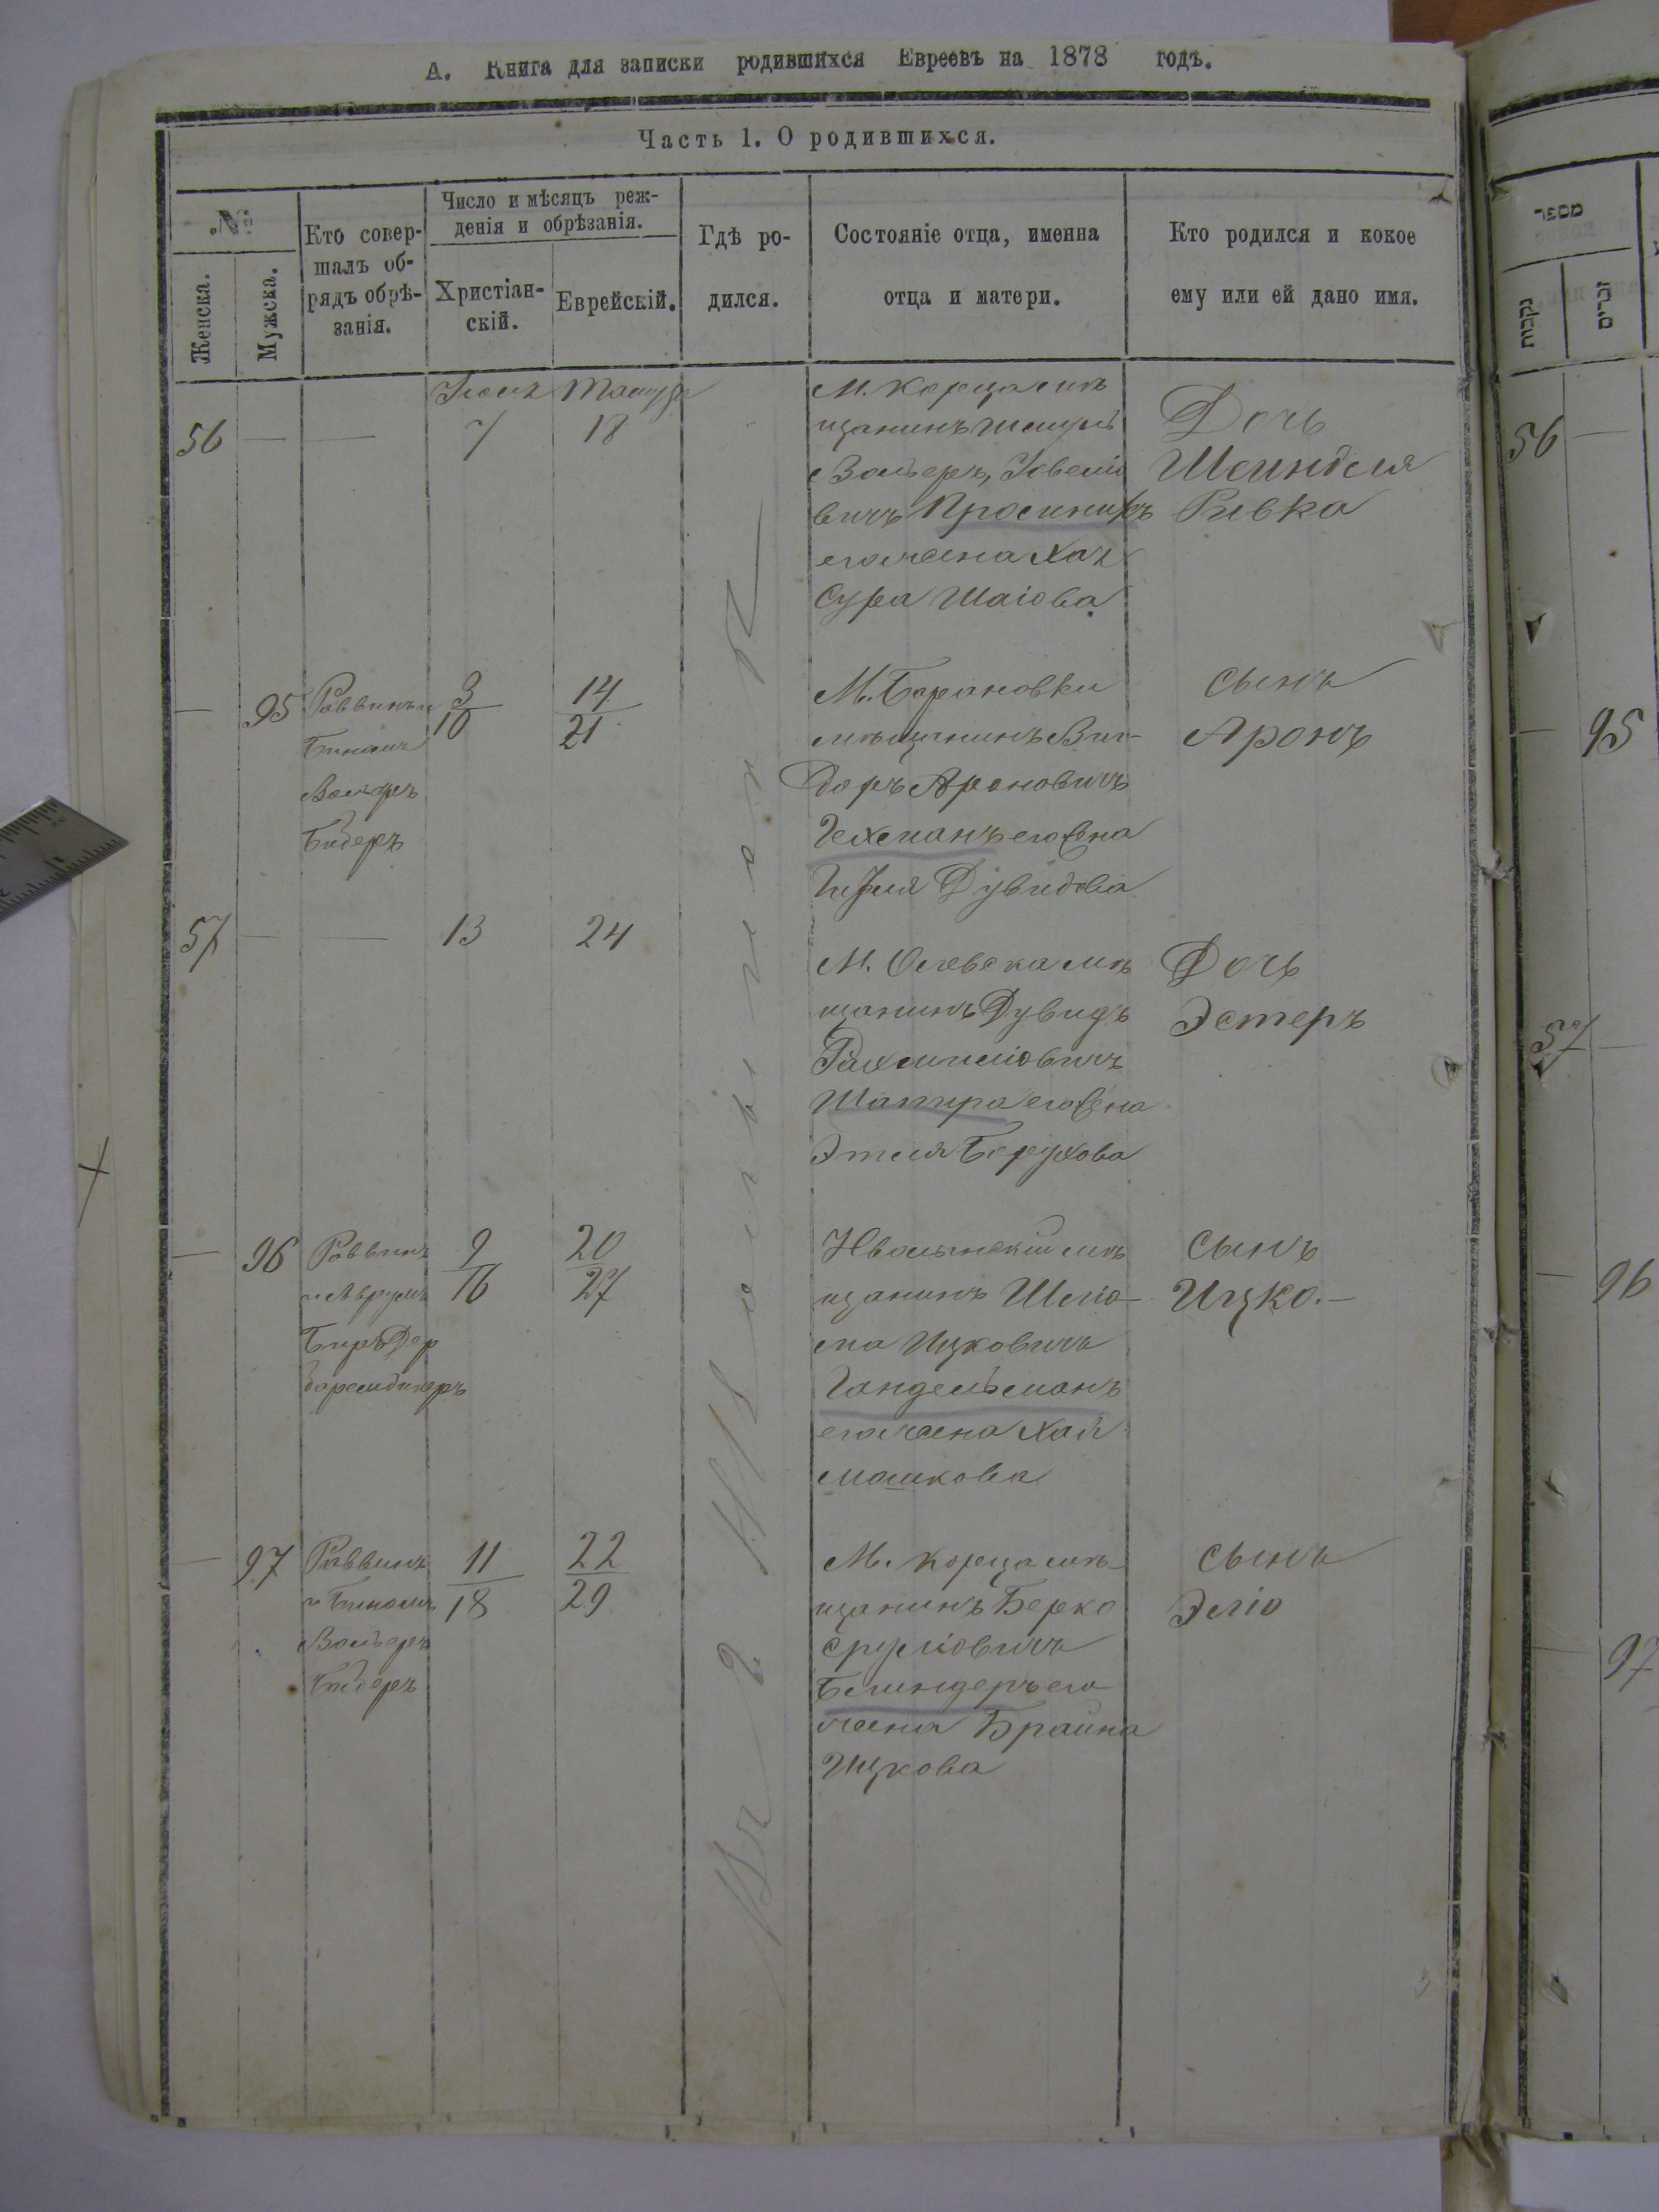 А. Книга для записки родившихся Евреевъ на 1878 годъ.
Часть 1. О родившихся.
№
Женска.
Мужска.
Кто совер-
шалъ об-
рядъ обрѣ-
занія.
Число и мѣсяцъ реж-
денія и обрѣзанія.
Христіан-
скій.
Еврейскій.
Гдѣ ро-
дился.
Состояніе отца, именна
отца и матери.
Кто родился и кокое
ему или ей дано имя.
56 — — 7 18
М. Корца мѣ
щанинъ Шмуль
Вольеръ,
вичъ
его жена Хая
Сура Шаіова
Дочь
Шейнделя
Ривка
— 95 Раввинъ и
Биномъ
Бидеръ
3
10
14
21
М. Барановки
мѣщанинъ Виг-
доръ Ароновичъ
Гехманъ его жена
Дувидова
сынъ
Аронъ
57 — — 13 24
М. Олевска мѣ
щанинъ Дувидъ
Рахміиліовичъ
Шапира его жена
Этля Берухова
Дочь
Эстеръ
— 96 Раввинъ
и Аврумъ
9
16
20
27
Нволынскій мѣ
щанинъ Шліо-
ма Ицковичъ
Гандельманъ
его жена Хая
Машкова
сынъ
Ицко.—
— 97 Раввинъ
и Биномъ
Вольеръ
Бидеръ
11
18
22
29
М. Корца мѣ-
щанинъ Берко
Сруліовичъ
Блиндеръ его
жена Брайна
Ицкова
сынъ
Эліо
מספר
נקבות
זכרים
56 —
— 95
57 —
— 96
— 97